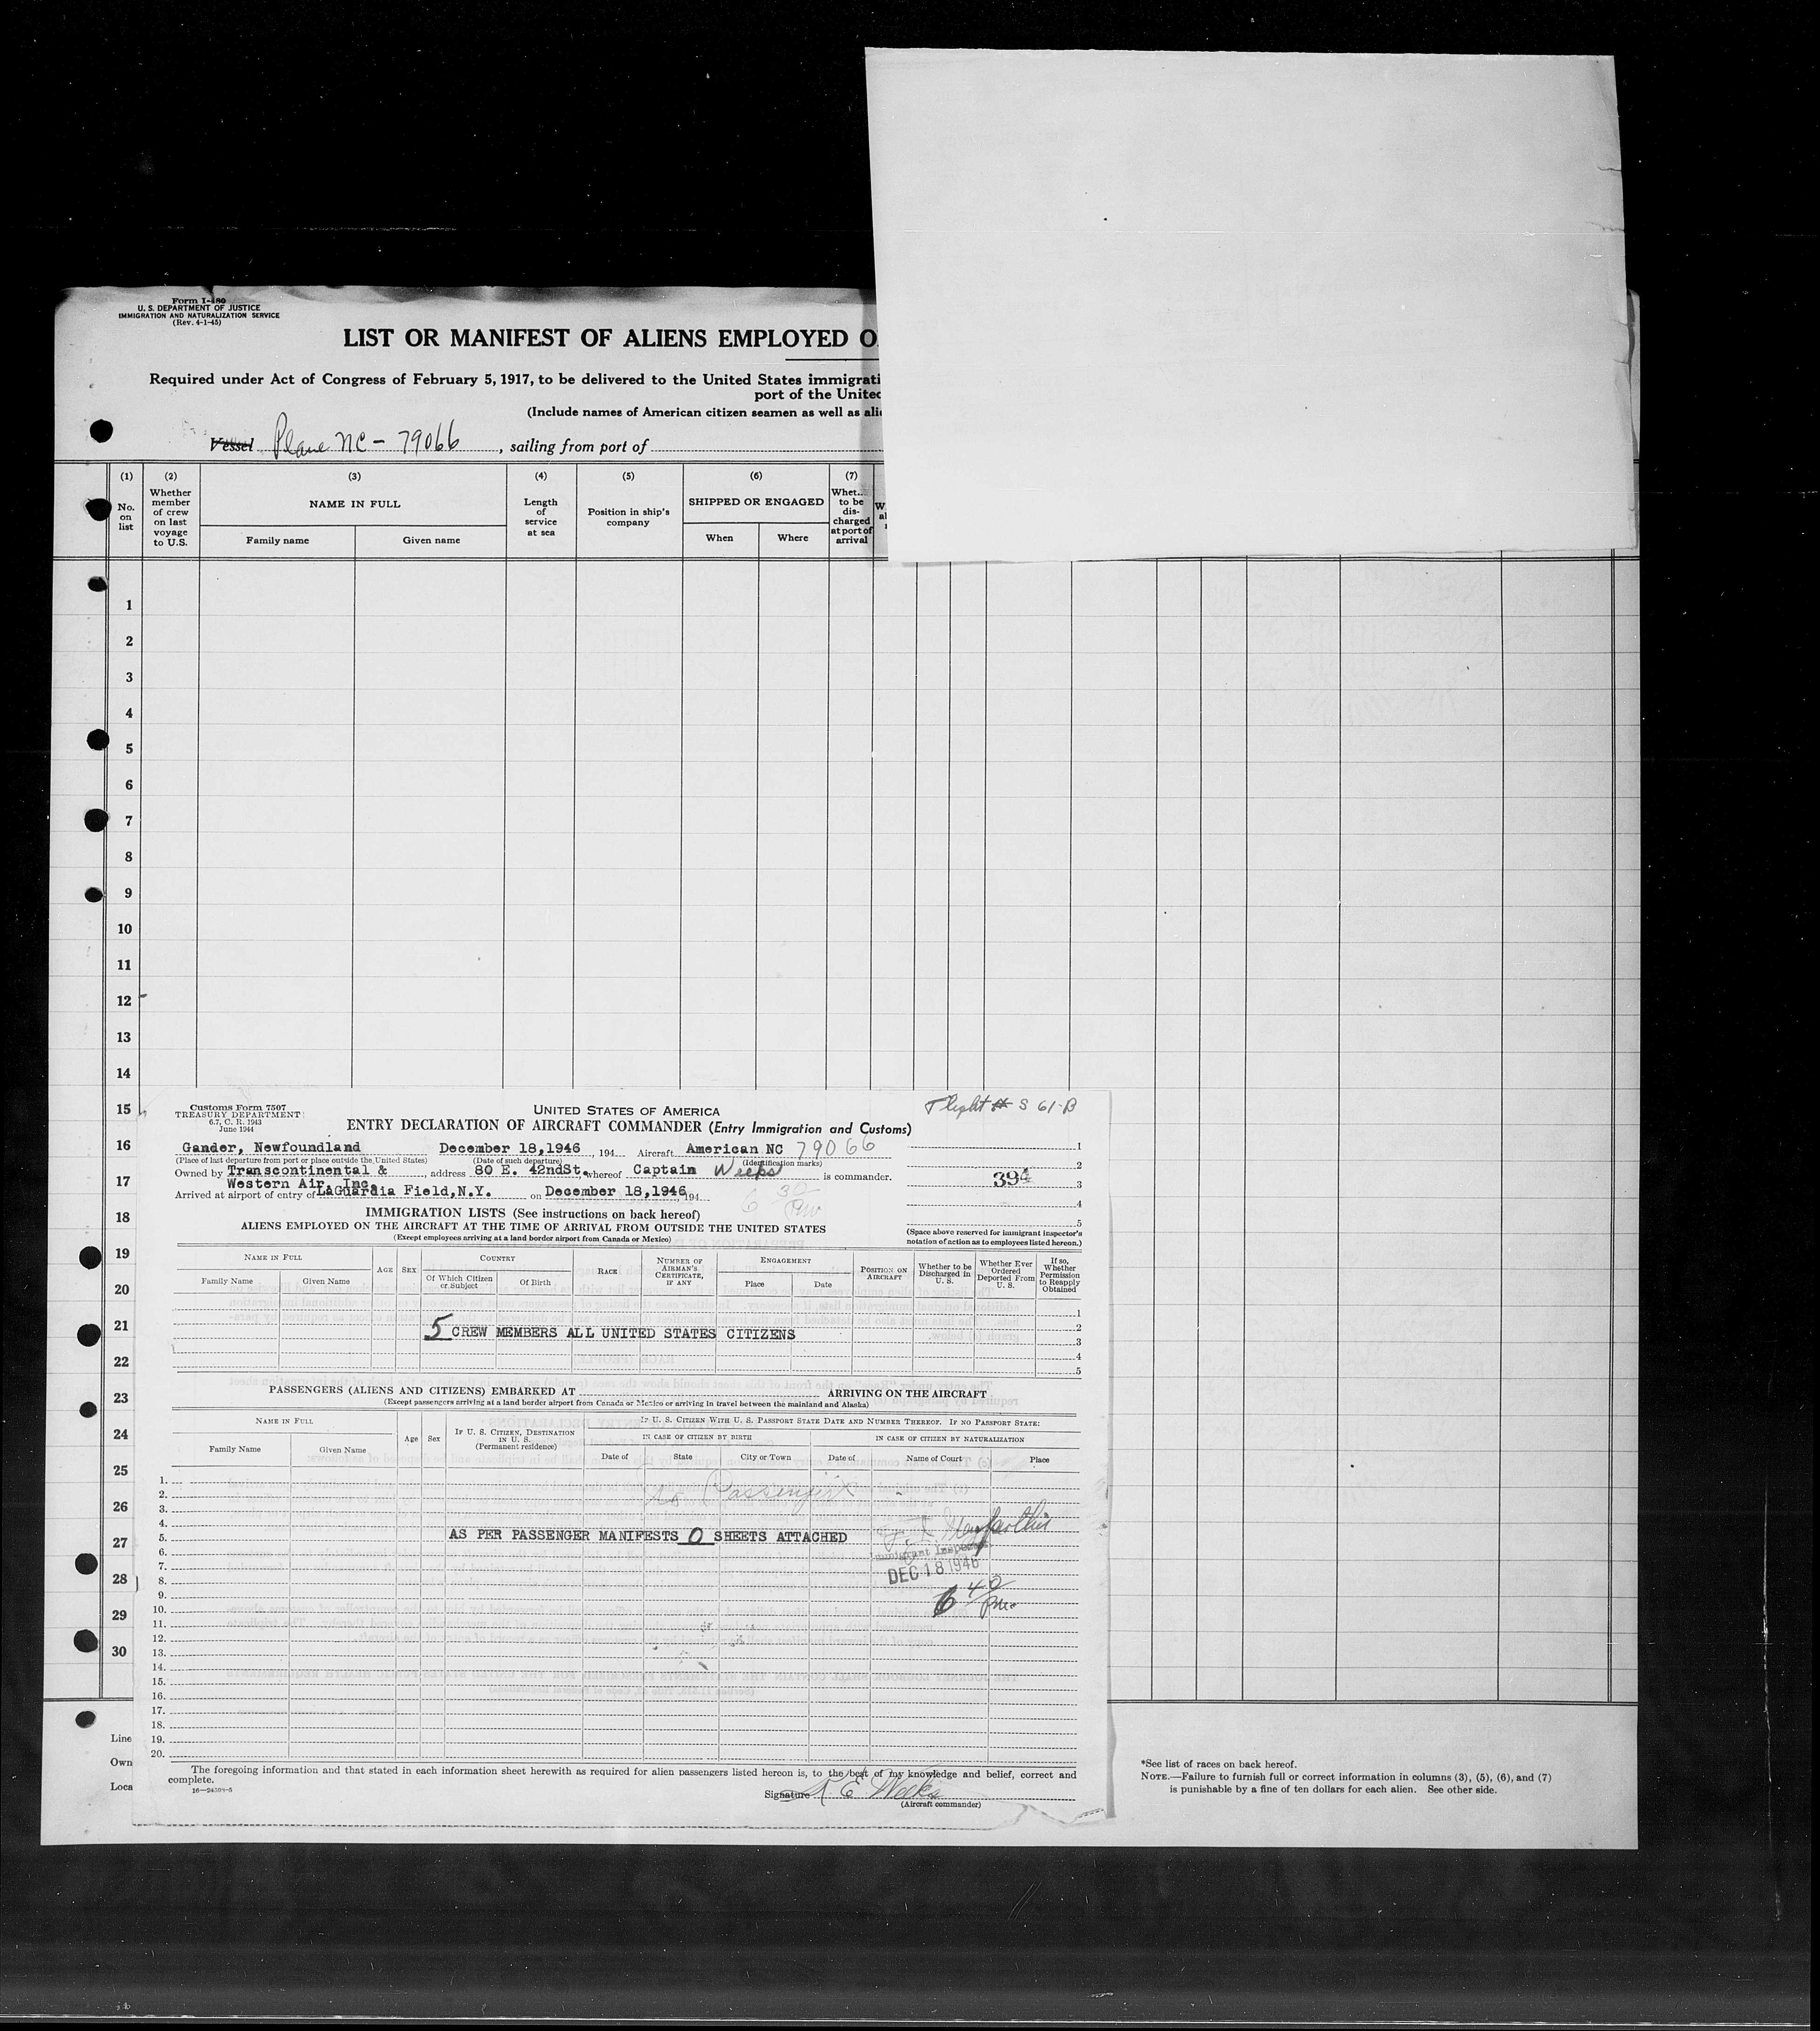 Form I-480
U. S. DEPARTMENT OF JUSTICE
IMMIGRATION AND NATURALIZATION SERVICE
(Rev. 4-1-45)
LIST OR MANIFEST OF ALIENS EMPLOYED O
Required under Act of Congress of February 5, 1917, to be delivered to the United States immigrati
port of the United
(Include names of American citizen seamen as well as alie
Vessel Plane NC - 79066, sailing from port of
(1) (2) (3) (4) (5) (6) (7)
No. on list
Whether member of crew on last voyage to U.S.
NAME IN FULL
Family name
Given name
Length of service at sea
Position in ship's company
SHIPPED OR ENGAGED
When
Where
Whet... to be discharged at port of arrival
1
2
3
4
5
6
7
8
9
10
11
12
13
14
15
16
17
18
19
20
21
22
23
24
25
26
27
28
29
30
Line
Own
Loca
Customs Form 7507
TREASURY DEPARTMENT
6.7, C. R. 1943
June 1944
UNITED STATES OF AMERICA
Flight # S 61-B
ENTRY DECLARATION OF AIRCRAFT COMMANDER (Entry Immigration and Customs)
Gander, Newfoundland December 18,1946, 194 Aircraft American NC 79066
(Place of last departure from port or place outside the United States) (Date of such departure) (Identification marks)
Owned by Transcontinental & address 80 E. 42ndSt. whereof Captain Weeks is commander.
Western Air, Inc.
Arrived at airport of entry of LaGuardia Field,N.Y. on December 18,1946, 194
6 30 PM
1
2
394
3
4
5
(Space above reserved for immigrant inspector's notation of action as to employees listed hereon.)
IMMIGRATION LISTS (See instructions on back hereof)
ALIENS EMPLOYED ON THE AIRCRAFT AT THE TIME OF ARRIVAL FROM OUTSIDE THE UNITED STATES
(Except employees arriving at a land border airport from Canada or Mexico)
NAME IN FULL
Family Name
Given Name
AGE
SEX
COUNTRY
Of Which Citizen or Subject
Of Birth
RACE
NUMBER OF AIRMAN'S CERTIFICATE, IF ANY
ENGAGEMENT
Place
Date
POSITION ON AIRCRAFT
Whether to be Discharged in U. S.
Whether Ever Ordered Deported From U. S.
If so, Whether Permission to Reapply Obtained
1
2
5 CREW MEMBERS ALL UNITED STATES CITIZENS
3
4
5
PASSENGERS (ALIENS AND CITIZENS) EMBARKED AT ARRIVING ON THE AIRCRAFT
(Except passengers arriving at a land border airport from Canada or Mexico or arriving in travel between the mainland and Alaska)
NAME IN FULL
Family Name
Given Name
Age
Sex
IF U. S. CITIZEN, DESTINATION IN U. S.
(Permanent residence)
IF U. S. CITIZEN WITH U. S. PASSPORT STATE DATE AND NUMBER THEREOF. IF NO PASSPORT STATE:
IN CASE OF CITIZEN BY BIRTH
IN CASE OF CITIZEN BY NATURALIZATION
Date of
State
City or Town
Date of
Name of Court
Place
1.
2.
No Passengers
3.
4.
5.
AS PER PASSENGER MANIFESTS 0 SHEETS ATTACHED
Immigrant Inspector
DEC 18 1946
6 40 pm
6.
7.
8.
9.
10.
11.
12.
13.
14.
15.
16.
17.
18.
19.
20.
The foregoing information and that stated in each information sheet herewith as required for alien passengers listed hereon is, to the best of my knowledge and belief, correct and
complete.
Signature R E Weeks
(Aircraft commander)
*See list of races on back hereof.
NOTE.—Failure to furnish full or correct information in columns (3), (5), (6), and (7)
is punishable by a fine of ten dollars for each alien. See other side.